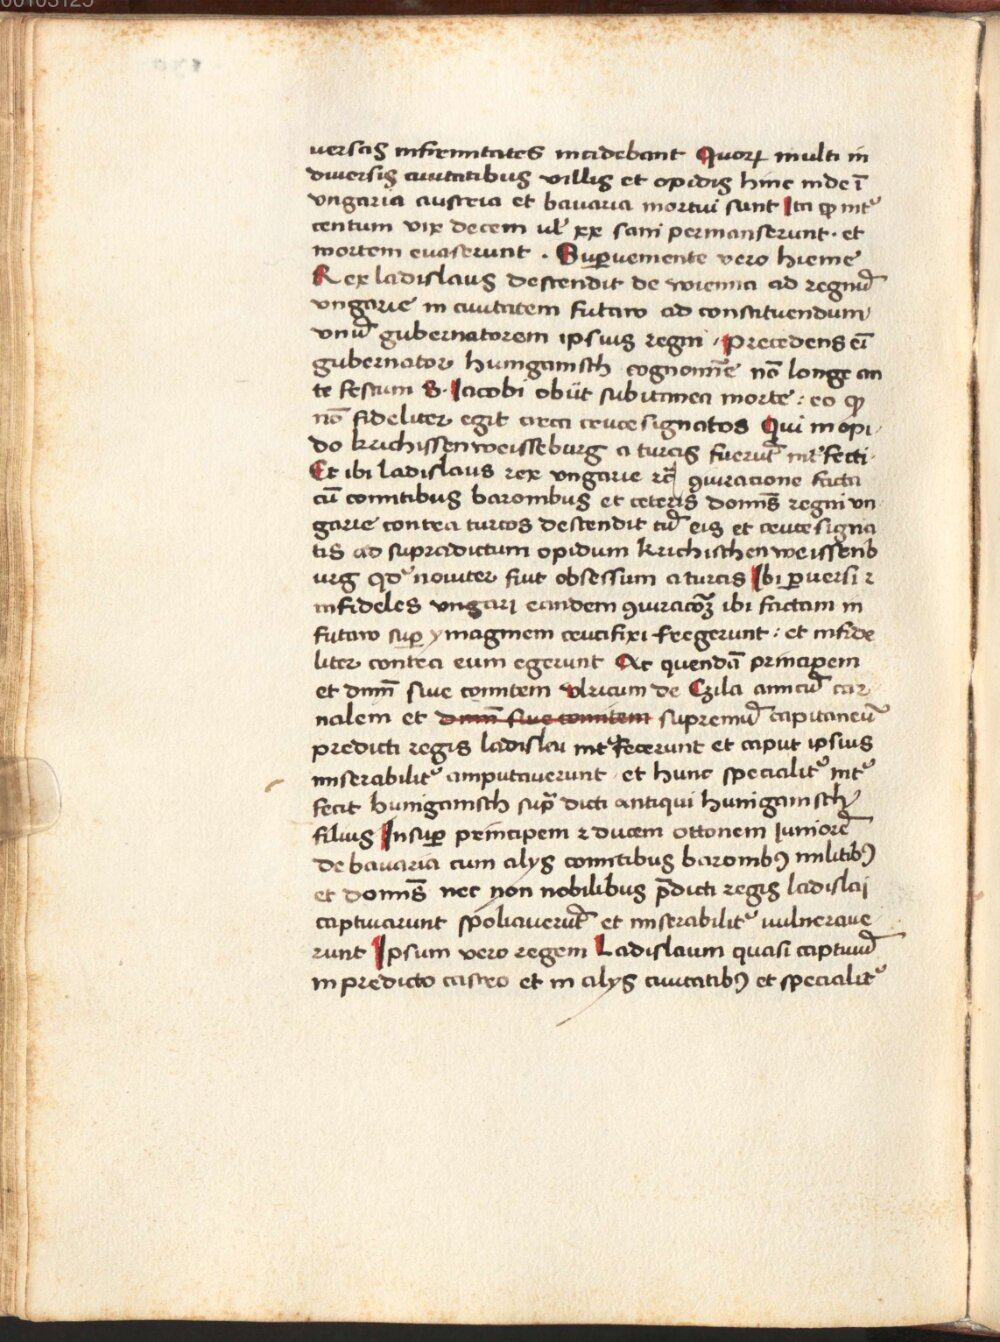 00103125
versas infirmitates incidebant Quorꝝ multi in
diversis civitatibus villis et opidis hinc inde ī
vngaria austria et bavaria mortui sunt Ita ꝙ int᷒
centum vix decem vel xx sani permanserunt · et
mortem evaserunt . Superveniente vero hieme
Rex ladislaus descendit de wienna ad regnū
vngarie in civitatem futaw ad constituendum
vnū gubernatorem ipsius regni · Precedens eī
gubernator hunigamsch cognomīe nō longe an
te festum S. Iacobi obiit subitanea morte : eo ꝙ
nō fideliter egit circa crucesignatos Qui in opi
do krichissenweisseburg a turcis fuerūt int᷒fecti
Et ibi ladislaus rex vngarie rc̄ ꝯiuracione facta
cū comitibus baronibus et ceteris domīs regni vn
garie contra turcos descendit cū eis et crucesigna
tis ad supradictum opidum krichischenweissenb
urg qd᷒ noviter fuit obsessum a turcis Ibi ꝑversi ꝛ
infideles vngari eandem ꝯiuracōꝫ ibi factam in
futaw suꝑ ymaginem crucifixi fregerunt : et infide
liter contra eum egerunt Ac quendā principem
et dnm̄ sive comitem vlricum de Czila amicū car
nalem et dnm̄ sive comitem supremū capitaneū
predicti regis ladislai int᷒fecerunt et caput ipsius
miserabilit᷒ amputaverunt et hunc specialit᷒ int᷒
fecit hunigamsch supra dicti antiqui hunigamsch
filius Insuꝑ principem ꝛ ducem ottonem Iuniorē
de bavaria cum alys comitibus baronibꝰ militibꝰ
et domīs nec non nobilibus p̄dicti regis ladislai
captivarunt spoliaverūt et miserabilit᷒ vulnerave
runt Ipsum vero regem Ladislaum quasi captivū
in predicto castro et in alys civitatibꝰ et specialit᷒